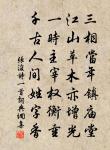 三相當年鎮廟堂
江山草木亦增光
一時主宰權衡重
千古人間姓字香
張浚詩一首詞典網